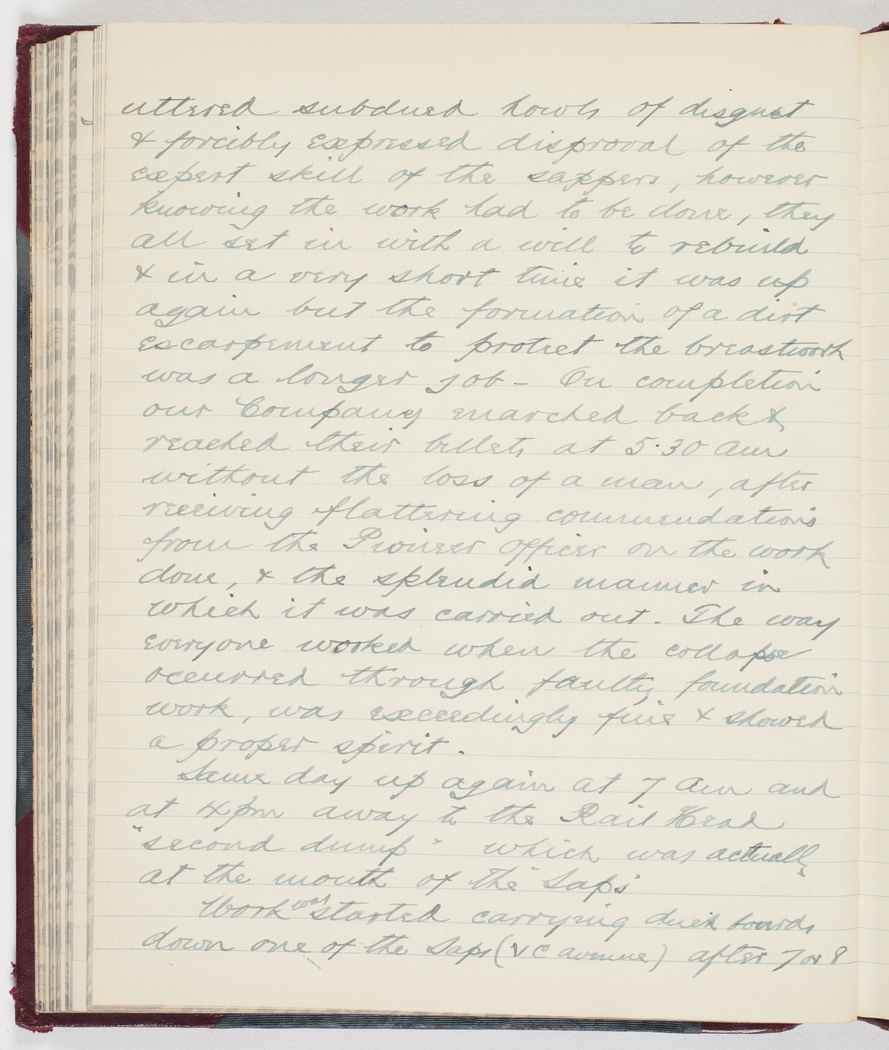 uttered subdued howls of disgust
& forcibly expressed disproval of the
expert skill of the sappers, however
knowing the work had to be done, they
all set in with a will to rebuild
& in a very short time it was up
again but the formation of a dirt
escarpement to protect the breastwork
was a longer job - On completion
our Company marched back &
reached their billets at 5.30 am
without the loss of a man, after
receiving flattering commendations
from the Pioneer Officer on the work
done, & the splendid manner in
which it was carried out. The way
everyone worked when the collapse
occurred through faulty foundation
work, was exceedingly fine & showed
a proper spirit.
Same day up again at 7 am and
at 4 pm away to the Rail Head
"second dump" which was actually
at the mouth of the "Saps"
Work was started carrying duck boards
down one of the Saps (V C avenue) after 7 or 8